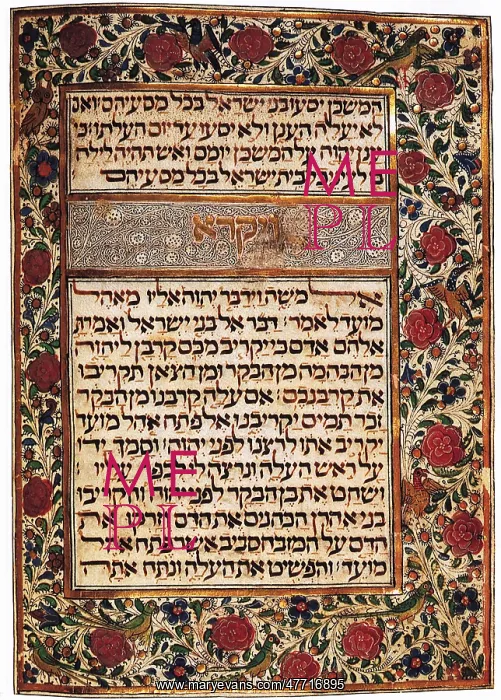 המשכן יסעו בני ישראל בכל מסעיהם ואם
לא יעלה הענן ולא יסעו עד יום העלתו כי
יהוה על המשכן יומם ואש תהיה לילה
בית ישראל בכל מסעיהם
ME
PL
ויקרא
אל משה וידבר יהוה אליו מאהל
מועד לאמר דבר אל בני ישראל ואמרת
אלהם אדם כי יקריב מכם קרבן ליהוה
מן הבהמה מן הבקר ומן הצאן תקריבו
את קרבנכם אם עלה קרבנו מן הבקר
זכר תמים יקריבנו אל פתח אהל מועד
יקריב אתו לרצנו לפני יהוה וסמך ידו
על ראש העלה ונרצה לו
ME
ושחט את בן הבקר לפני יהוה והקריבו
בני אהרן הכהנים את הדם וזרקו את
PL
הדם על המזבח סביב אשר פתח אהל
מועד והפשיט את העלה ונתח אתה
www.maryevans.com/47716895